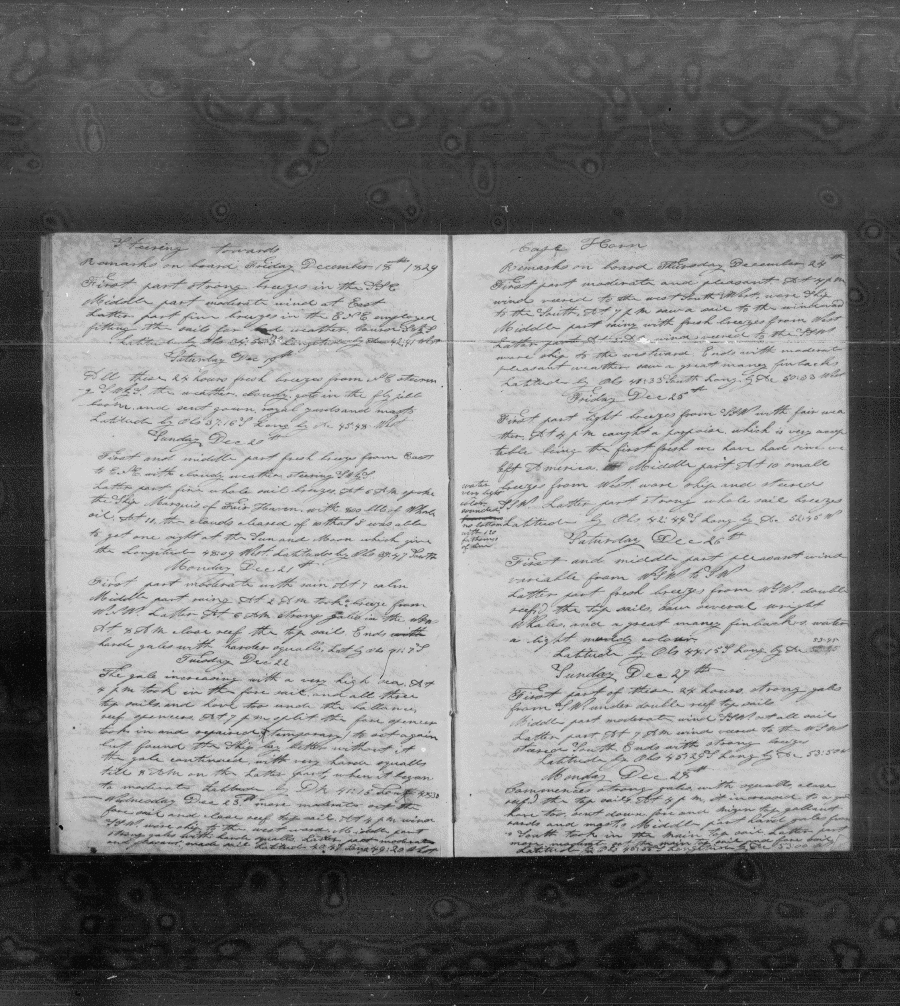 Steering towards
Remarks on board Friday December 18th 1829
First part strong breezes in the
Middle part moderate wind at East
Latter part fine breezes in the employed
fitting the sails for bad weather
Latitude by Obs Longitude by
Saturday Dec 19th
All these 24 hours fresh breezes from steering
the weather cloudy got in the fly jib
boom and sent down royal yards and masts
Latitude by Obs 37:16 S Long by 45:48 West
Sunday Dec 20th
First and middle part fresh breeze from East
to with cloudy weather steering
Latter part fine whole sail breeze At 6 AM spoke
the Ship Marquis of Fair Haven with 800 bbls of Whale
oil At 11 the clouds cleared of so that I was able
to get one sight at the Sun and Moon which gives
the Longitude 48:09 West Latitude by Obs 39:47 South
Monday Dec 21st
First part moderate with rain At 7 calm
Middle part rainy At 2 AM took breeze from
WSW Latter At 6 AM strong gales in the
At 8 AM close reef the top sail Ends with
harde gales with harder squalls Lat by Obs 41:2 S
Tuesday Dec 22
The gale increasing with a very high sea At
4 PM took in the fore sail and all three
top sails and hove too under the ballance
reef spencers At 7 PM split the fore spencer
took in and repaired (temporary) to set again
but found the Ship lay better without it
the gale continued with very harde squalls
till 8 AM on the Latter part when it began
to moderate Latitude by DR
Wednesday Dec 23th more moderate set the
fore sail and close reef top sail At 4 PM wind
SSW wore ship to the west ward Middle part
strong gales with squalls Latter part moderate
and pleasant made sail Latitude Long 49:20 West
Cape Horn
Remarks on board Thursday December 24th
First part moderate and pleasant At 4 PM
wind veered to the west South West, wore ship
to the South, At 7 PM saw a sail to the windward
Middle part rainy with fresh breezes from West
Latter part At AM wind veered to the SSW
wore ship to the westward Ends with moderate
pleasant weather saw a great many finbacks
Latitude by Obs 41:33 South Long by 50:03 West
Friday Dec 25th
First part light breezes from SSW with fair wea
ther At 4 PM caught a porpoise which is very accep
table being the first fresh we have had since we
left America Middle part At 10 small
breezes from West wore ship and steered
SSW Latter part strong whole sail breezes
Latitude by Obs 42:44 S Long by 52:45 W
water
very light
colour
sounded
no bottom
with 120
fathoms
of line
Saturday Dec 26th
First and middle part pleasant wind
variable from WSW to SW
Latter part fresh breezes from WSW double
reef'd the top sails saw several wright
Whales, and a great many finbacks water
a light muddy colour
Latitude by Obs 44:15 S Long by 53:45
Sunday Dec 27th
First part of these 24 hours strong gales
from SW under double reef top sails
Middle part moderate wind SSW set all sail
Latter part At 7 AM wind veered to the WSW
steered South Ends with strong breeze
Latitude by Obs 45:29 S Long by 53:50 W
Monday Dec 28th
Commences strong gales with squalls, close
reef'd the top sails At 4 PM it increased to a gale
hove too sent down fore and mizen top gallant
yards and masts Middle part hard gales from
South took in the main top sail Latter part
more moderate set the main top sail and fore sail
Latitude by Obs Long by 53:00 W